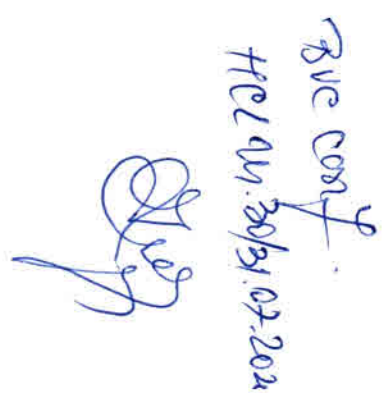 BVC conf.
HCL nr. 30/31.07.202